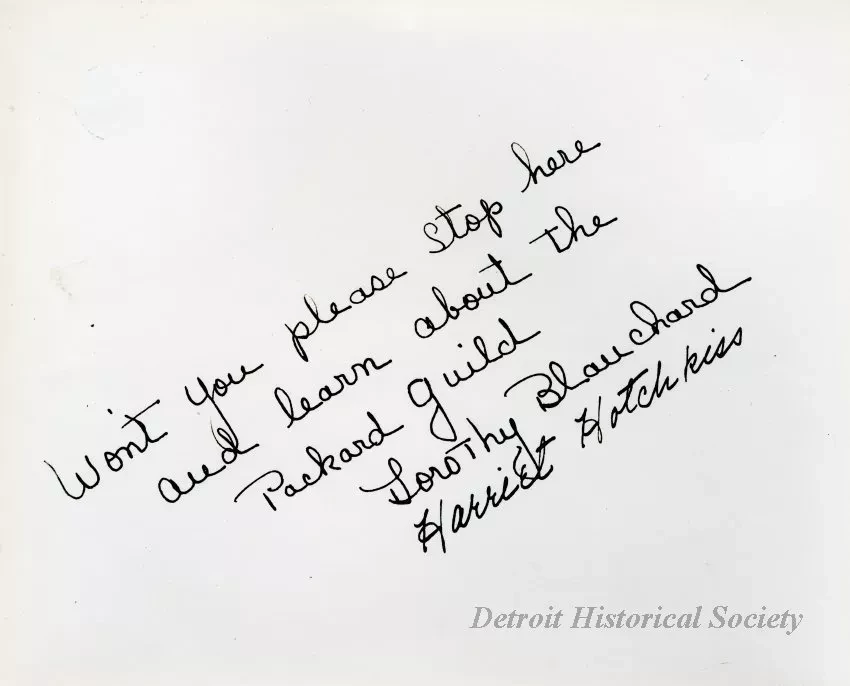 Won't you please stop here
and learn about the
Packard Guild
Dorothy Blanchard
Harriet Hotchkiss
Detroit Historical Society